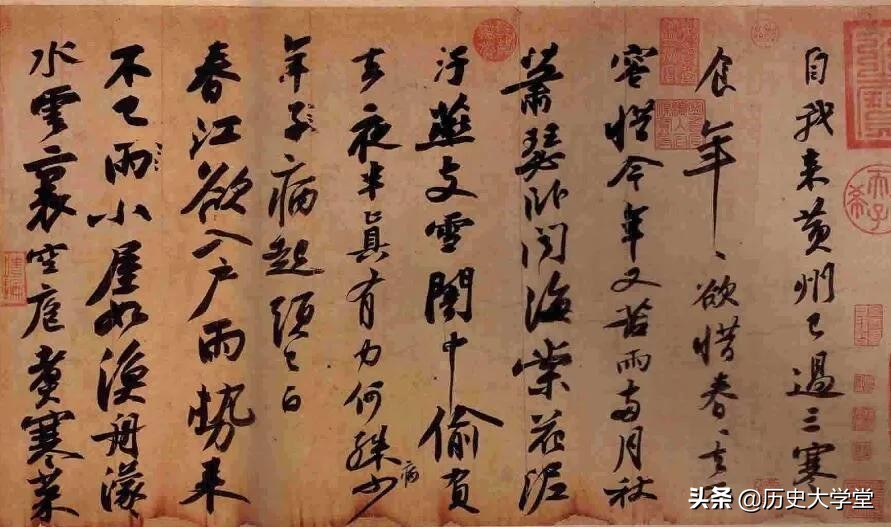 自我来黄州已過三寒
食年、欲惜春、去不
容惜今年又苦雨兩月秋
蕭瑟卧聞海棠花泥
汙燕支雪闇中偷負
去夜半真有力何殊少
病
年子病起頭已白
春江欲入户雨勢来
不已雨小屋如漁舟濛
水雲裏空庖煑寒菜
头条 @历史大学堂